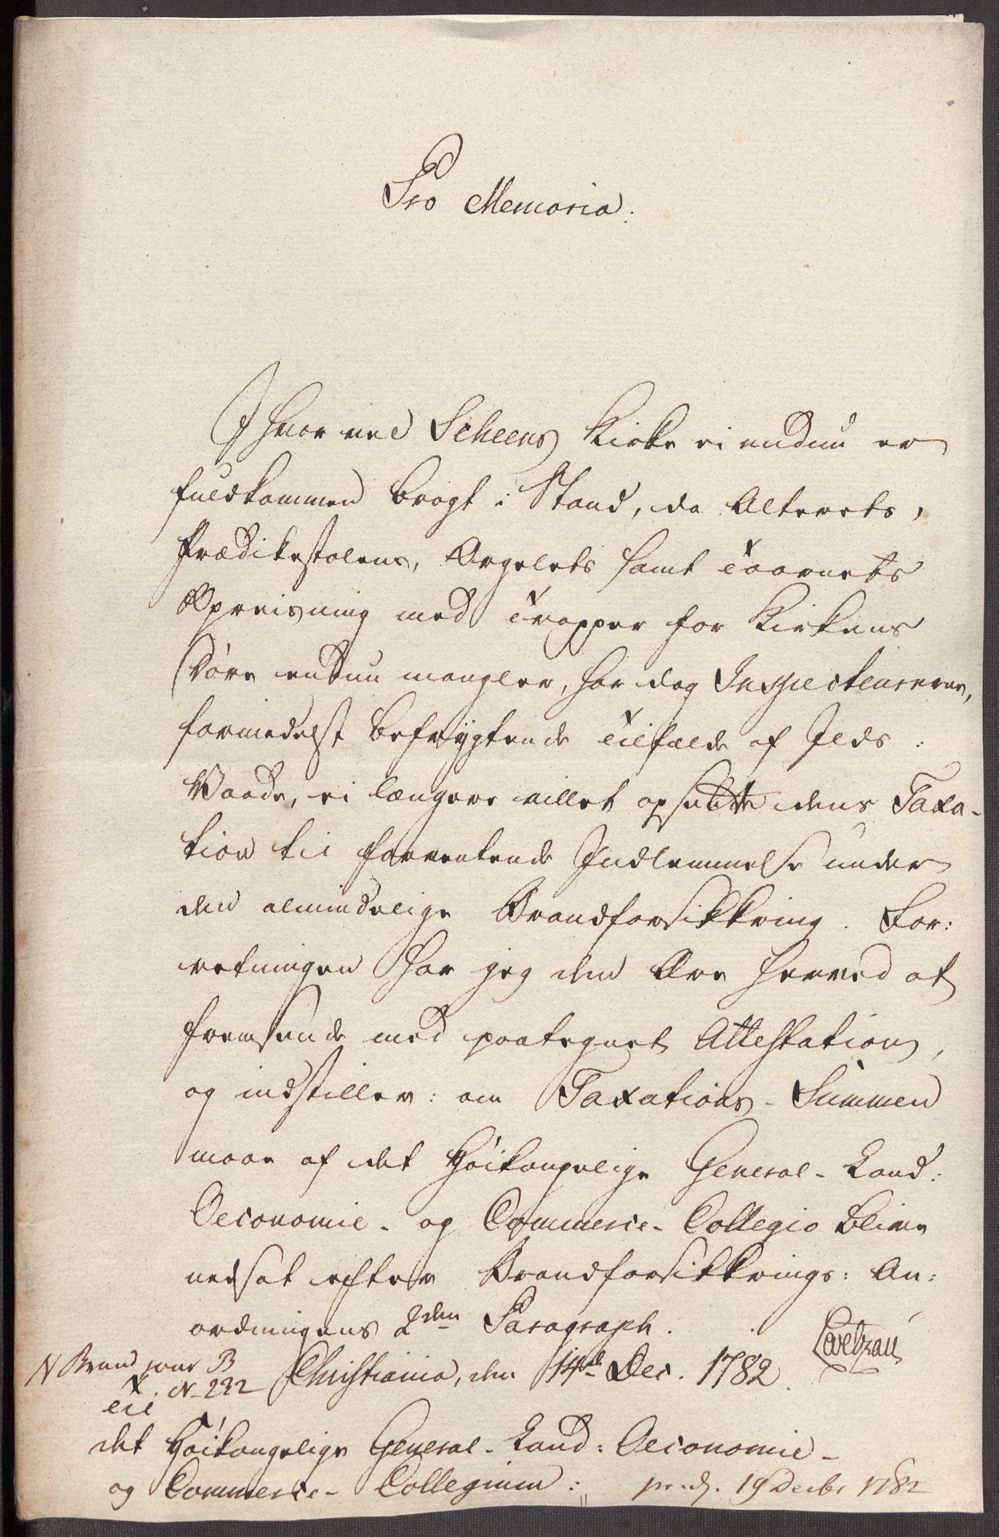 Pro Memoria.
Ihvorvel Scheens Kirke ei endnu er
fuldkommen bragt i Stand, da Alterets,
Prædikestolens, Orgelets samt Taarnets
Opreisning med Trapper for Kirkens
Döre endnu mangler, har dog Inspecteurerne,
formedelst befrygtende Tilfælde af Ilds:
Vaade, ei længere villet opsætte dens Taxa-
tion til forventende Indlemmelse under
den almindelige Brandforsikkring. For:
retningen har jeg den Ære herved at
fremsende med paategnet Attestation,
og indstiller: om Taxations-Summen
maae af det Höikongelige General-Land:
Oeconomie- og Commerce-Collegio blive
nedsat efter Brandforsikkrings: An:
ordningens 2den Paragraph.
Christiania, den 14de Dec. 1782.
Levetzau
N Brand jour B
N 232
Til
det Höikongelige General-Land: Oeconomie-
og Commerce-Collegium:
pr. d. 19 Decbr 1782